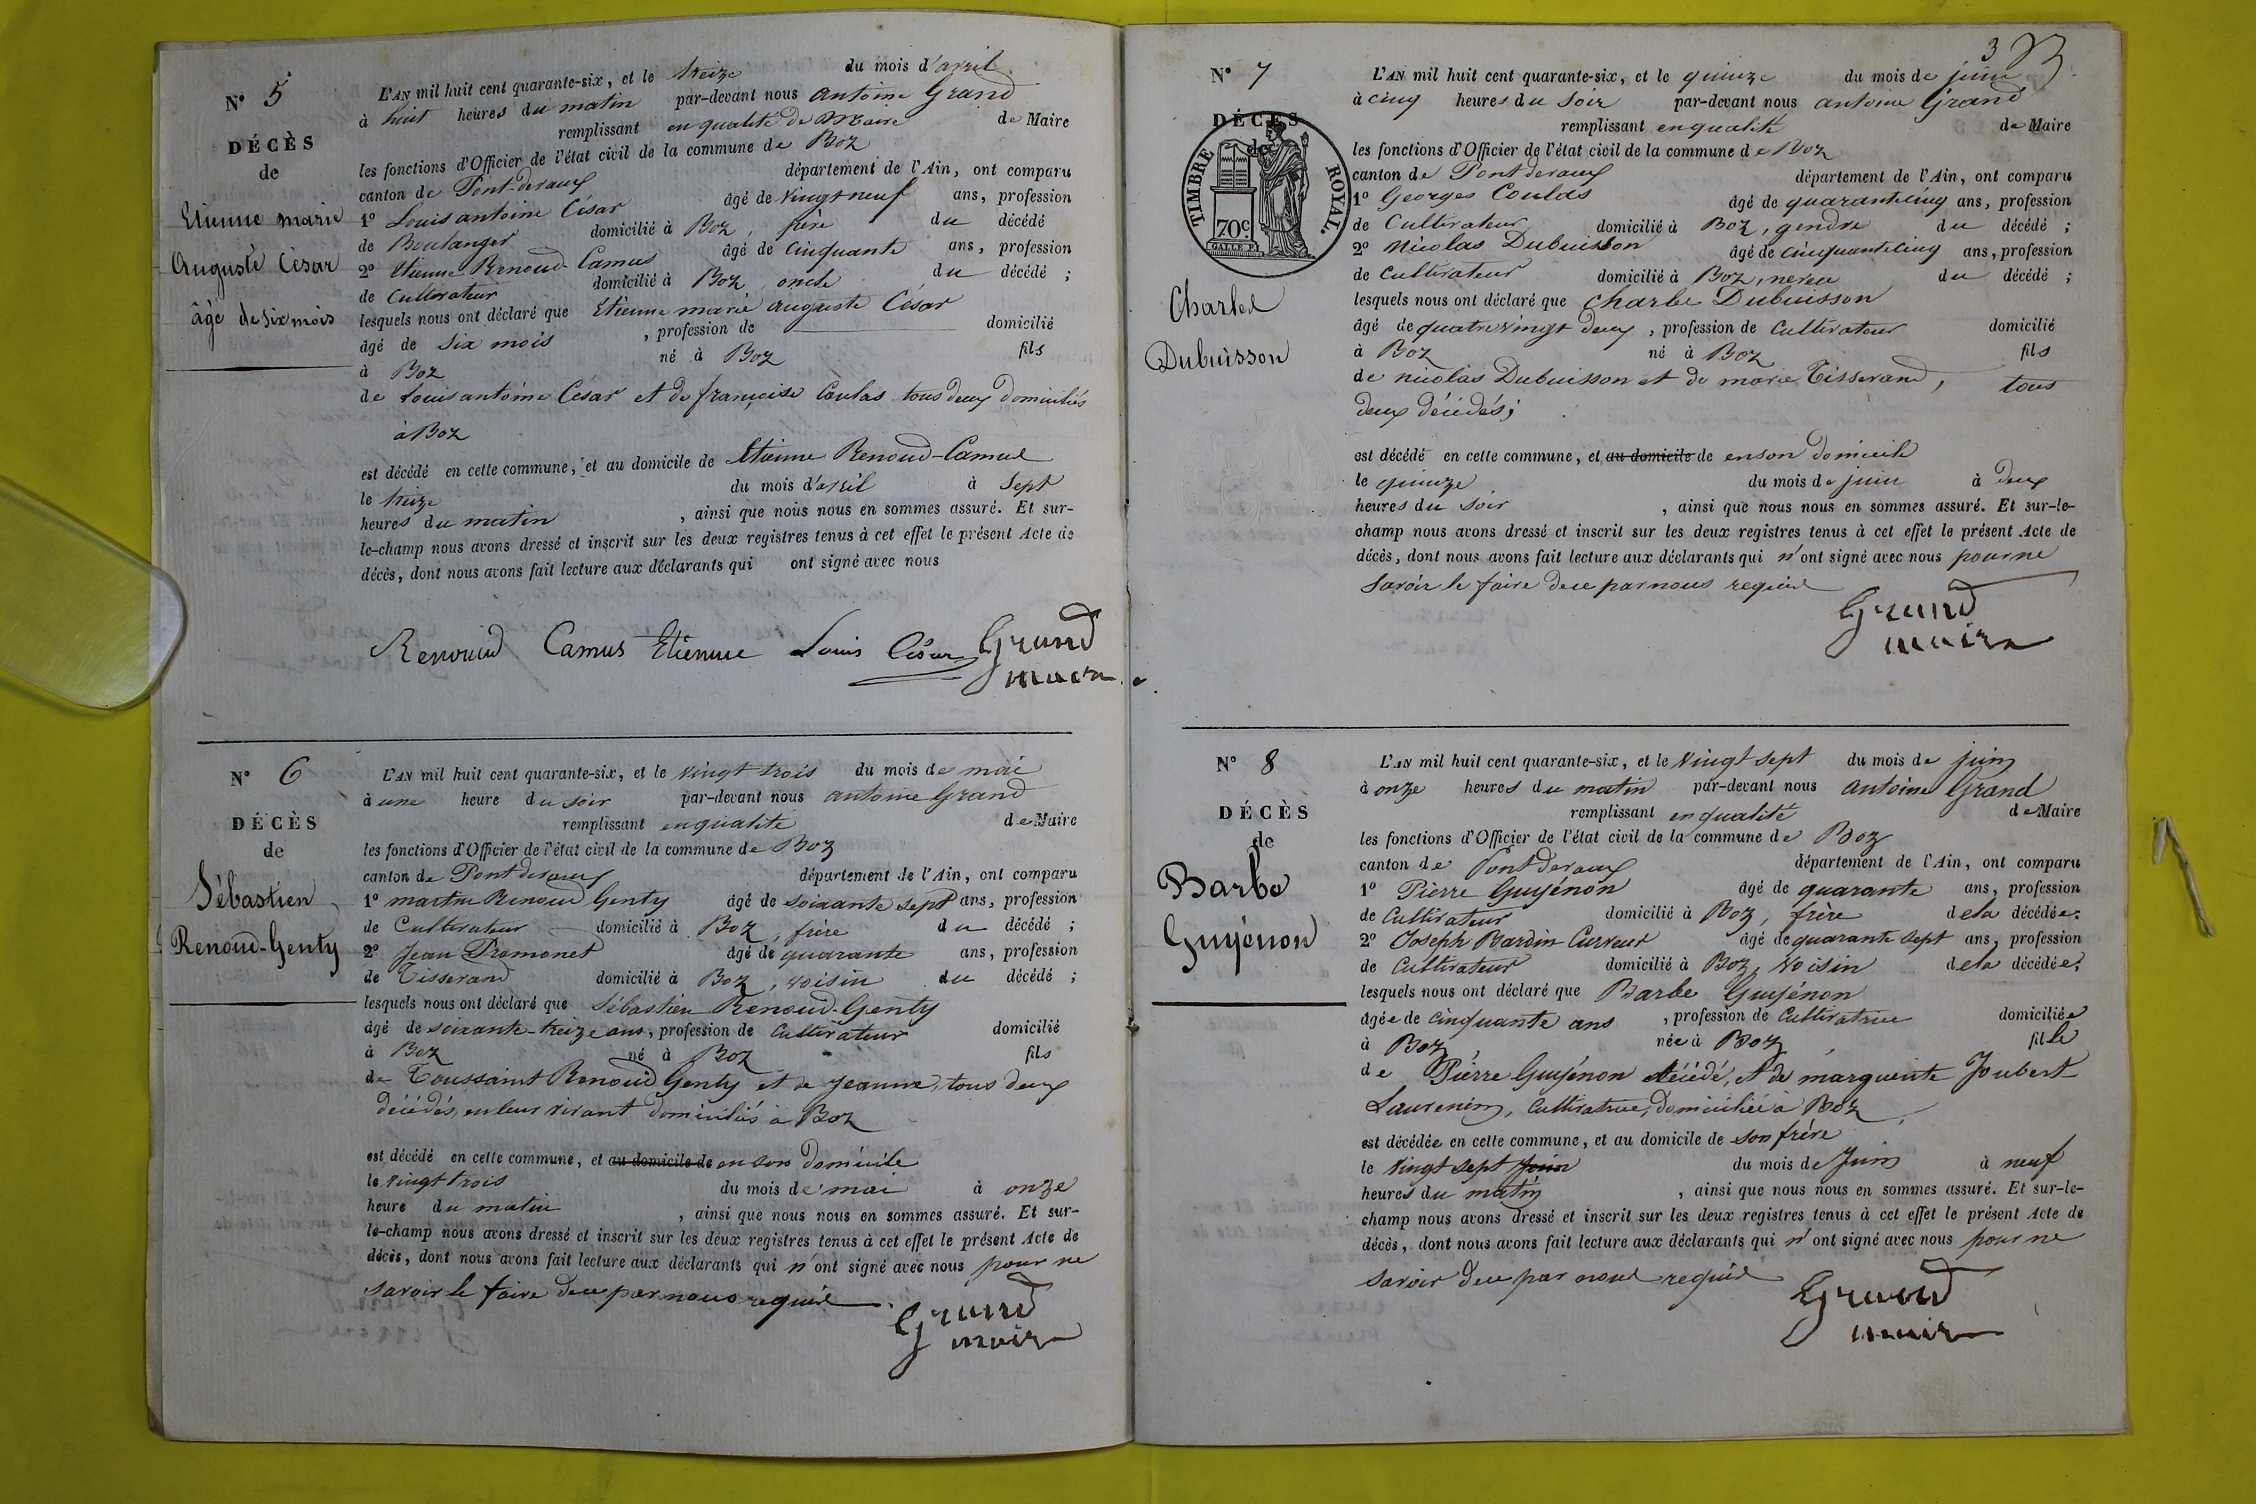 N° 5
DÉCÈS
de
Etienne marie
Auguste César
âgé de six mois
L'AN mil huit cent quarante-six, et le treize du mois d'avril
à huit heures du matin par-devant nous antoine Grand
remplissant en qualité de Maire de Maire
les fonctions d'Officier de l'état civil de la commune de Boz
canton de Pont-devaux département de l'Ain, ont comparu
1° Louis antoine César âgé de vingt neuf ans, profession
de Boulanger domicilié à Boz, père du décédé
2° Etienne Renoud-Camus âgé de cinquante ans, profession
de Cultivateur domicilié à Boz, oncle du décédé ;
lesquels nous ont déclaré que Etienne marie auguste César
âgé de six mois , profession de domicilié
à Boz né à Boz fils
de Louis antoine César et de françoise Coulas tous deux domiciliés
à Boz
est décédé en cette commune, et au domicile de Etienne Renoud-Camus
le treize du mois d'avril à sept
heures du matin , ainsi que nous nous en sommes assuré. Et sur-
le-champ nous avons dressé et inscrit sur les deux registres tenus à cet effet le présent Acte de
décès, dont nous avons fait lecture aux déclarants qui ont signé avec nous
Renoud Camus Etienne Louis César Grand
maire
N° 6
DÉCÈS
de
Sébastien
Renoud-Genty
L'AN mil huit cent quarante-six, et le vingt trois du mois de mai
à une heure du soir par-devant nous antoine Grand
remplissant en qualité de Maire
les fonctions d'Officier de l'état civil de la commune de Boz
canton de Pont devaux département de l'Ain, ont comparu
1° martin Renoud Genty âgé de soixante sept ans, profession
de Cultivateur domicilié à Boz, frère du décédé ;
2° Jean Pramonet âgé de quarante ans, profession
de Tisserand domicilié à Boz, voisin du décédé ;
lesquels nous ont déclaré que Sébastien Renoud-Genty
âgé de soixante-treize ans, profession de Cultivateur domicilié
à Boz né à Boz fils
de Toussaint Renoud Genty et de jeanne, tous deux
décédés, en leur vivant domiciliés à Boz
est décédé en cette commune, et au domicile de en son domicile
le vingt trois du mois de mai à onze
heure du matin , ainsi que nous nous en sommes assuré. Et sur-
le-champ nous avons dressé et inscrit sur les deux registres tenus à cet effet le présent Acte de
décès, dont nous avons fait lecture aux déclarants qui n'ont signé avec nous pour ne
savoir le faire de ce par nous requis
Grand
maire
3
N° 7
DÉCÈS
de
TIMBRE ROYAL
70c
GALLE F.
Charles
Dubuisson
L'AN mil huit cent quarante-six, et le quinze du mois de juin
à cinq heures du soir par-devant nous antoine Grand
remplissant en qualité de Maire
les fonctions d'Officier de l'état civil de la commune de Boz
canton de Pont devaux département de l'Ain, ont comparu
1° Georges Coulas âgé de quarante cinq ans, profession
de Cultivateur domicilié à Boz, gendre du décédé ;
2° Nicolas Dubuisson âgé de cinquante cinq ans, profession
de Cultivateur domicilié à Boz, neveu du décédé ;
lesquels nous ont déclaré que Charles Dubuisson
âgé de quatre vingt deux , profession de Cultivateur domicilié
à Boz né à Boz fils
de nicolas Dubuisson et de marie Tisserand, tous
deux décédés ;
est décédé en cette commune, et au domicile de en son domicile
le quinze du mois de juin à deux
heures du soir , ainsi que nous nous en sommes assuré. Et sur-le-
champ nous avons dressé et inscrit sur les deux registres tenus à cet effet le présent Acte de
décès, dont nous avons fait lecture aux déclarants qui n'ont signé avec nous pour ne
savoir le faire de ce par nous requis
Grand
maire
N° 8
DÉCÈS
de
Barbe
Guyénon
L'AN mil huit cent quarante-six, et le vingt sept du mois de juin
à onze heures du matin par-devant nous antoine Grand
remplissant en qualité de Maire
les fonctions d'Officier de l'état civil de la commune de Boz
canton de Pont devaux département de l'Ain, ont comparu
1° Pierre Guyénon âgé de quarante ans, profession
de Cultivateur domicilié à Boz, frère de la décédée.
2° Joseph Bardin Curveur âgé de quarante sept ans, profession
de Cultivateur domicilié à Boz, voisin de la décédée ;
lesquels nous ont déclaré que Barbe Guyénon
âgée de cinquante ans , profession de Cultivatrice domiciliée
à Boz née à Boz fille
de Pierre Guyénon décédé, et de marguerite Joubert
Laurencin, Cultivatrice, domiciliée à Boz
est décédée en cette commune, et au domicile de son frère
le vingt sept juin du mois de juin à neuf
heures du matin , ainsi que nous nous en sommes assuré. Et sur-le-
champ nous avons dressé et inscrit sur les deux registres tenus à cet effet le présent Acte de
décès, dont nous avons fait lecture aux déclarants qui n'ont signé avec nous pour ne
savoir de ce par nous requis
Grand
maire